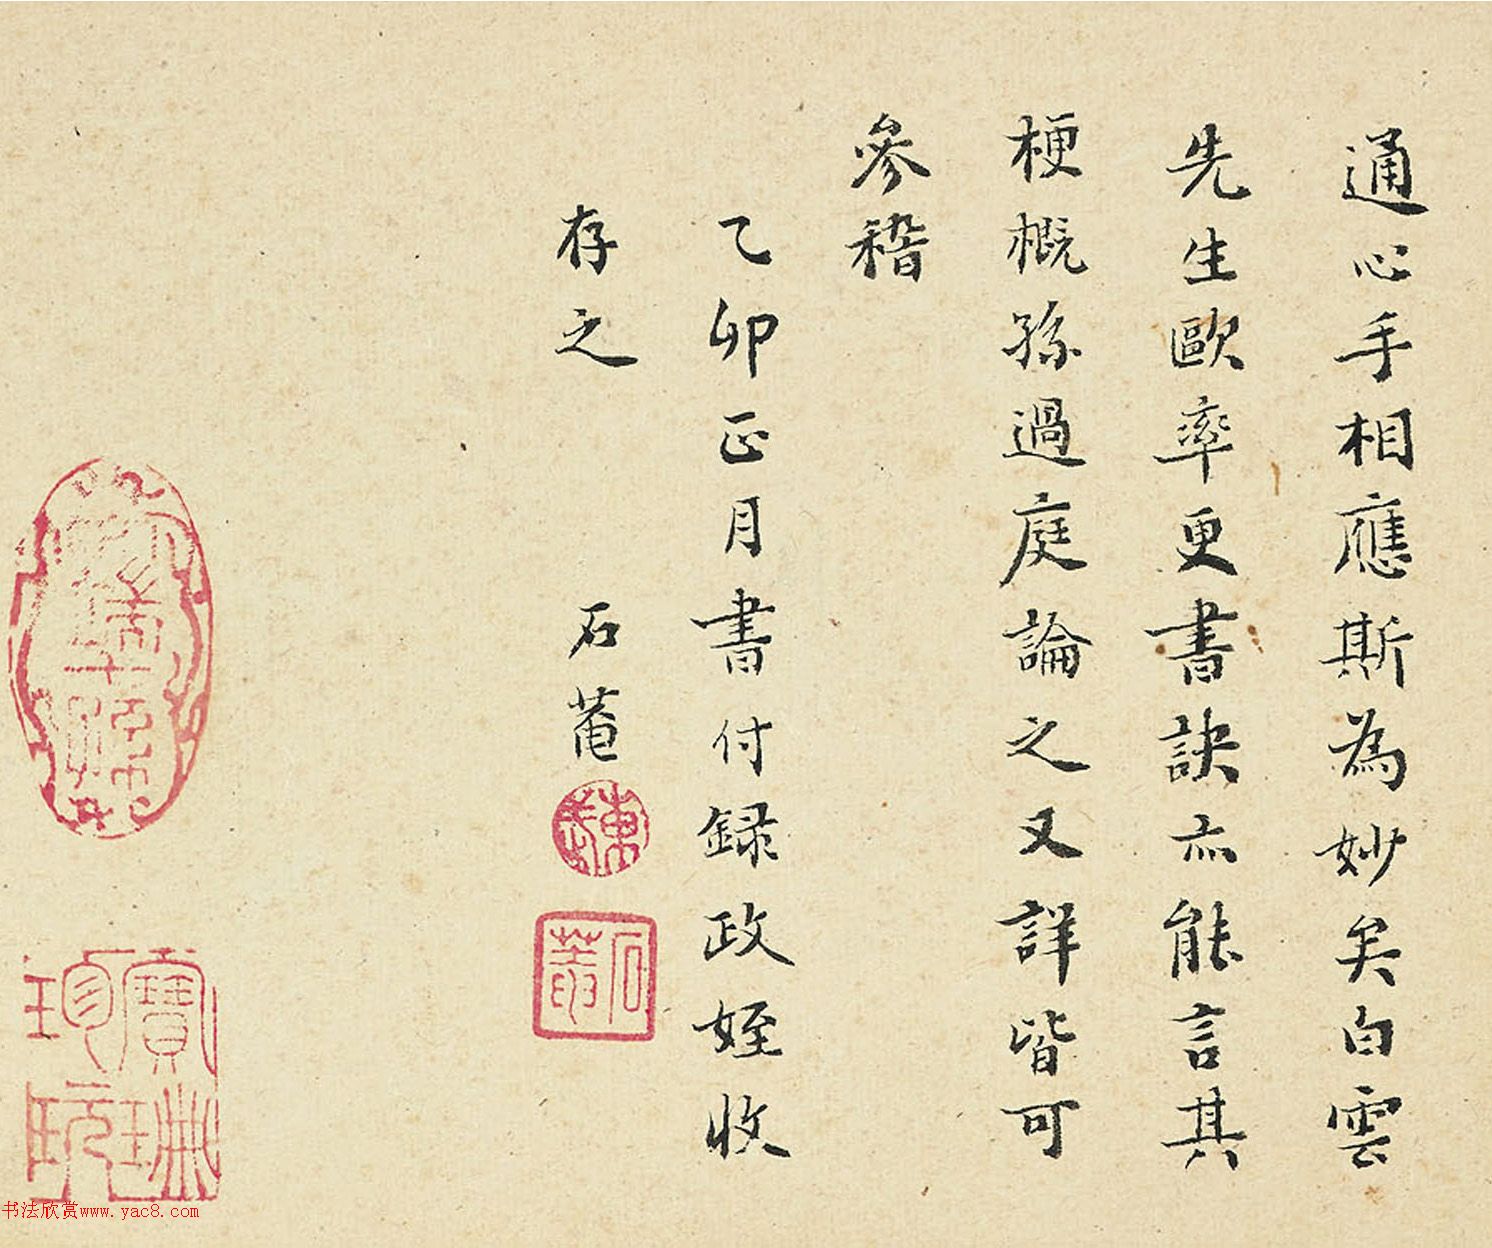 通心手相應斯為妙矣白雲
先生歐率更書訣亦能言其
梗概孫過庭論之又詳皆可
參稽
乙卯正月書付録政姪收
存之
石菴
石菴
書法欣赏www.yac8.com